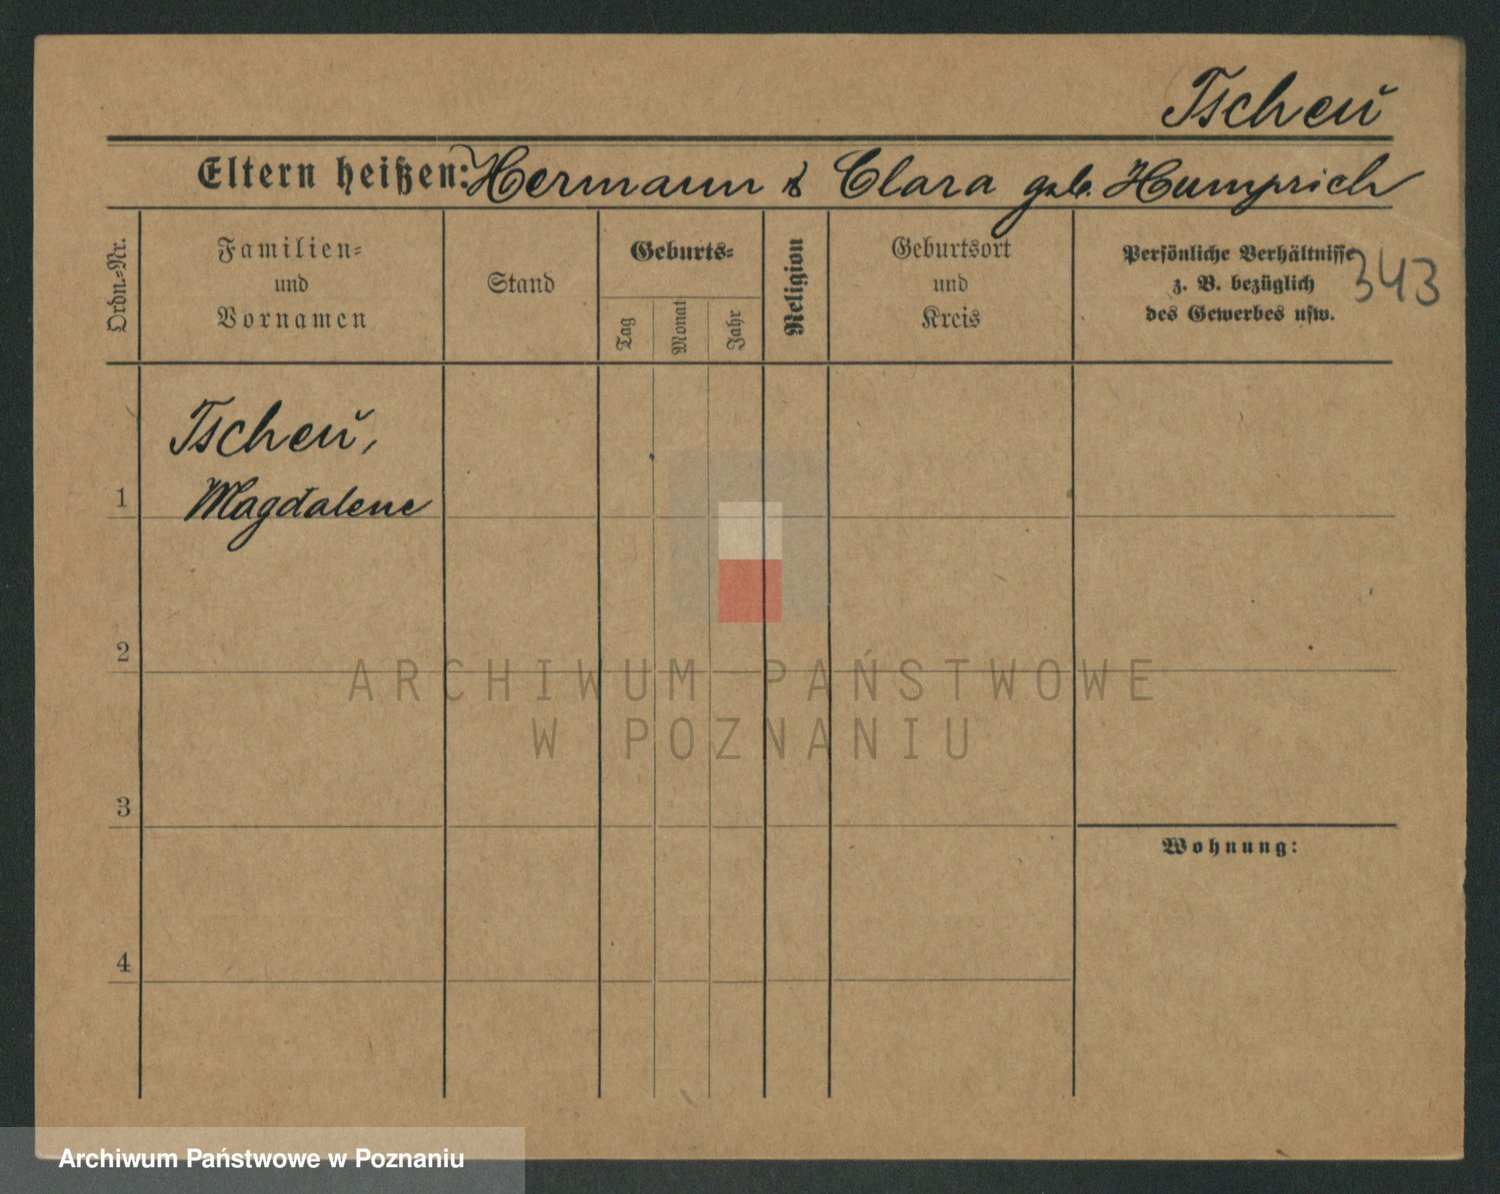 Tscheu
Eltern heißen: Hermann & Clara geb. Humprich
Ordn.-Nr.
Familien-
und
Vornamen
Stand
Geburts-
Tag
Monat
Jahr
Religion
Geburtsort
und
Kreis
Persönliche Verhältnisse
z. B. bezüglich
des Gewerbes usw.
343
Tscheu,
1 Magdalene
2
ARCHIWUM PAŃSTWOWE
W POZNANIU
3
Wohnung:
4
Archiwum Państwowe w Poznaniu